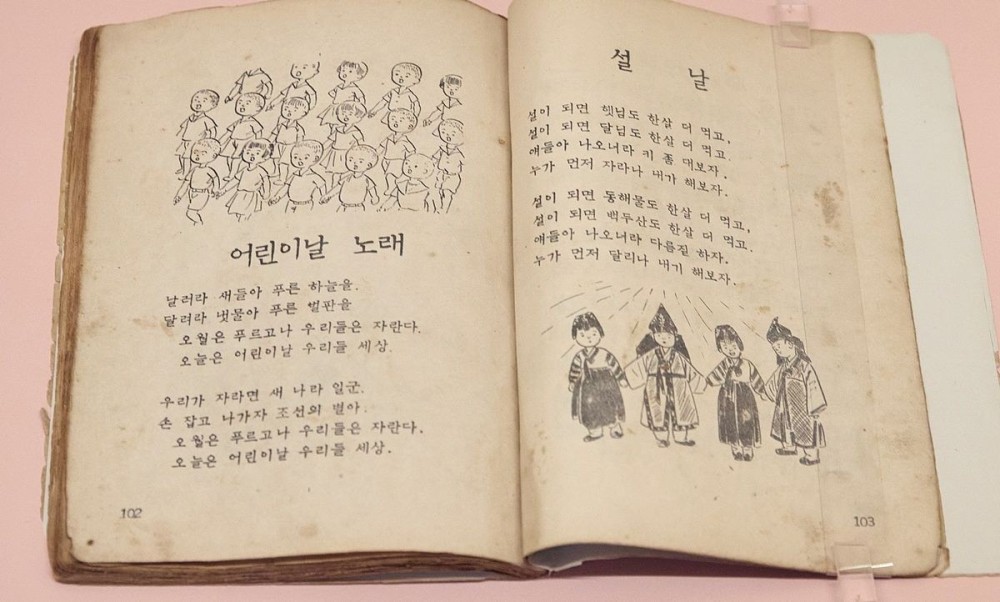 어린이날 노래
날러라 새들아 푸른 하늘을.
달려라 냇물아 푸른 벌판을
오월은 푸르고나 우리들은 자란다.
오늘은 어린이날 우리들 세상.
우리가 자라면 새 나라 일군.
손 잡고 나가자 조선의 별아.
오월은 푸르고나 우리들은 자란다.
오늘은 어린이날 우리들 세상.
102
설 날
설이 되면 햇님도 한살 더 먹고,
설이 되면 달님도 한살 더 먹고.
얘들아 나오너라 키 좀 대보자.
누가 먼저 자라나 내가 해보자.
설이 되면 동해물도 한살 더 먹고,
설이 되면 백두산도 한살 더 먹고.
얘들아 나오너라 다름질 하자.
누가 먼저 달리나 내기 해보자.
103